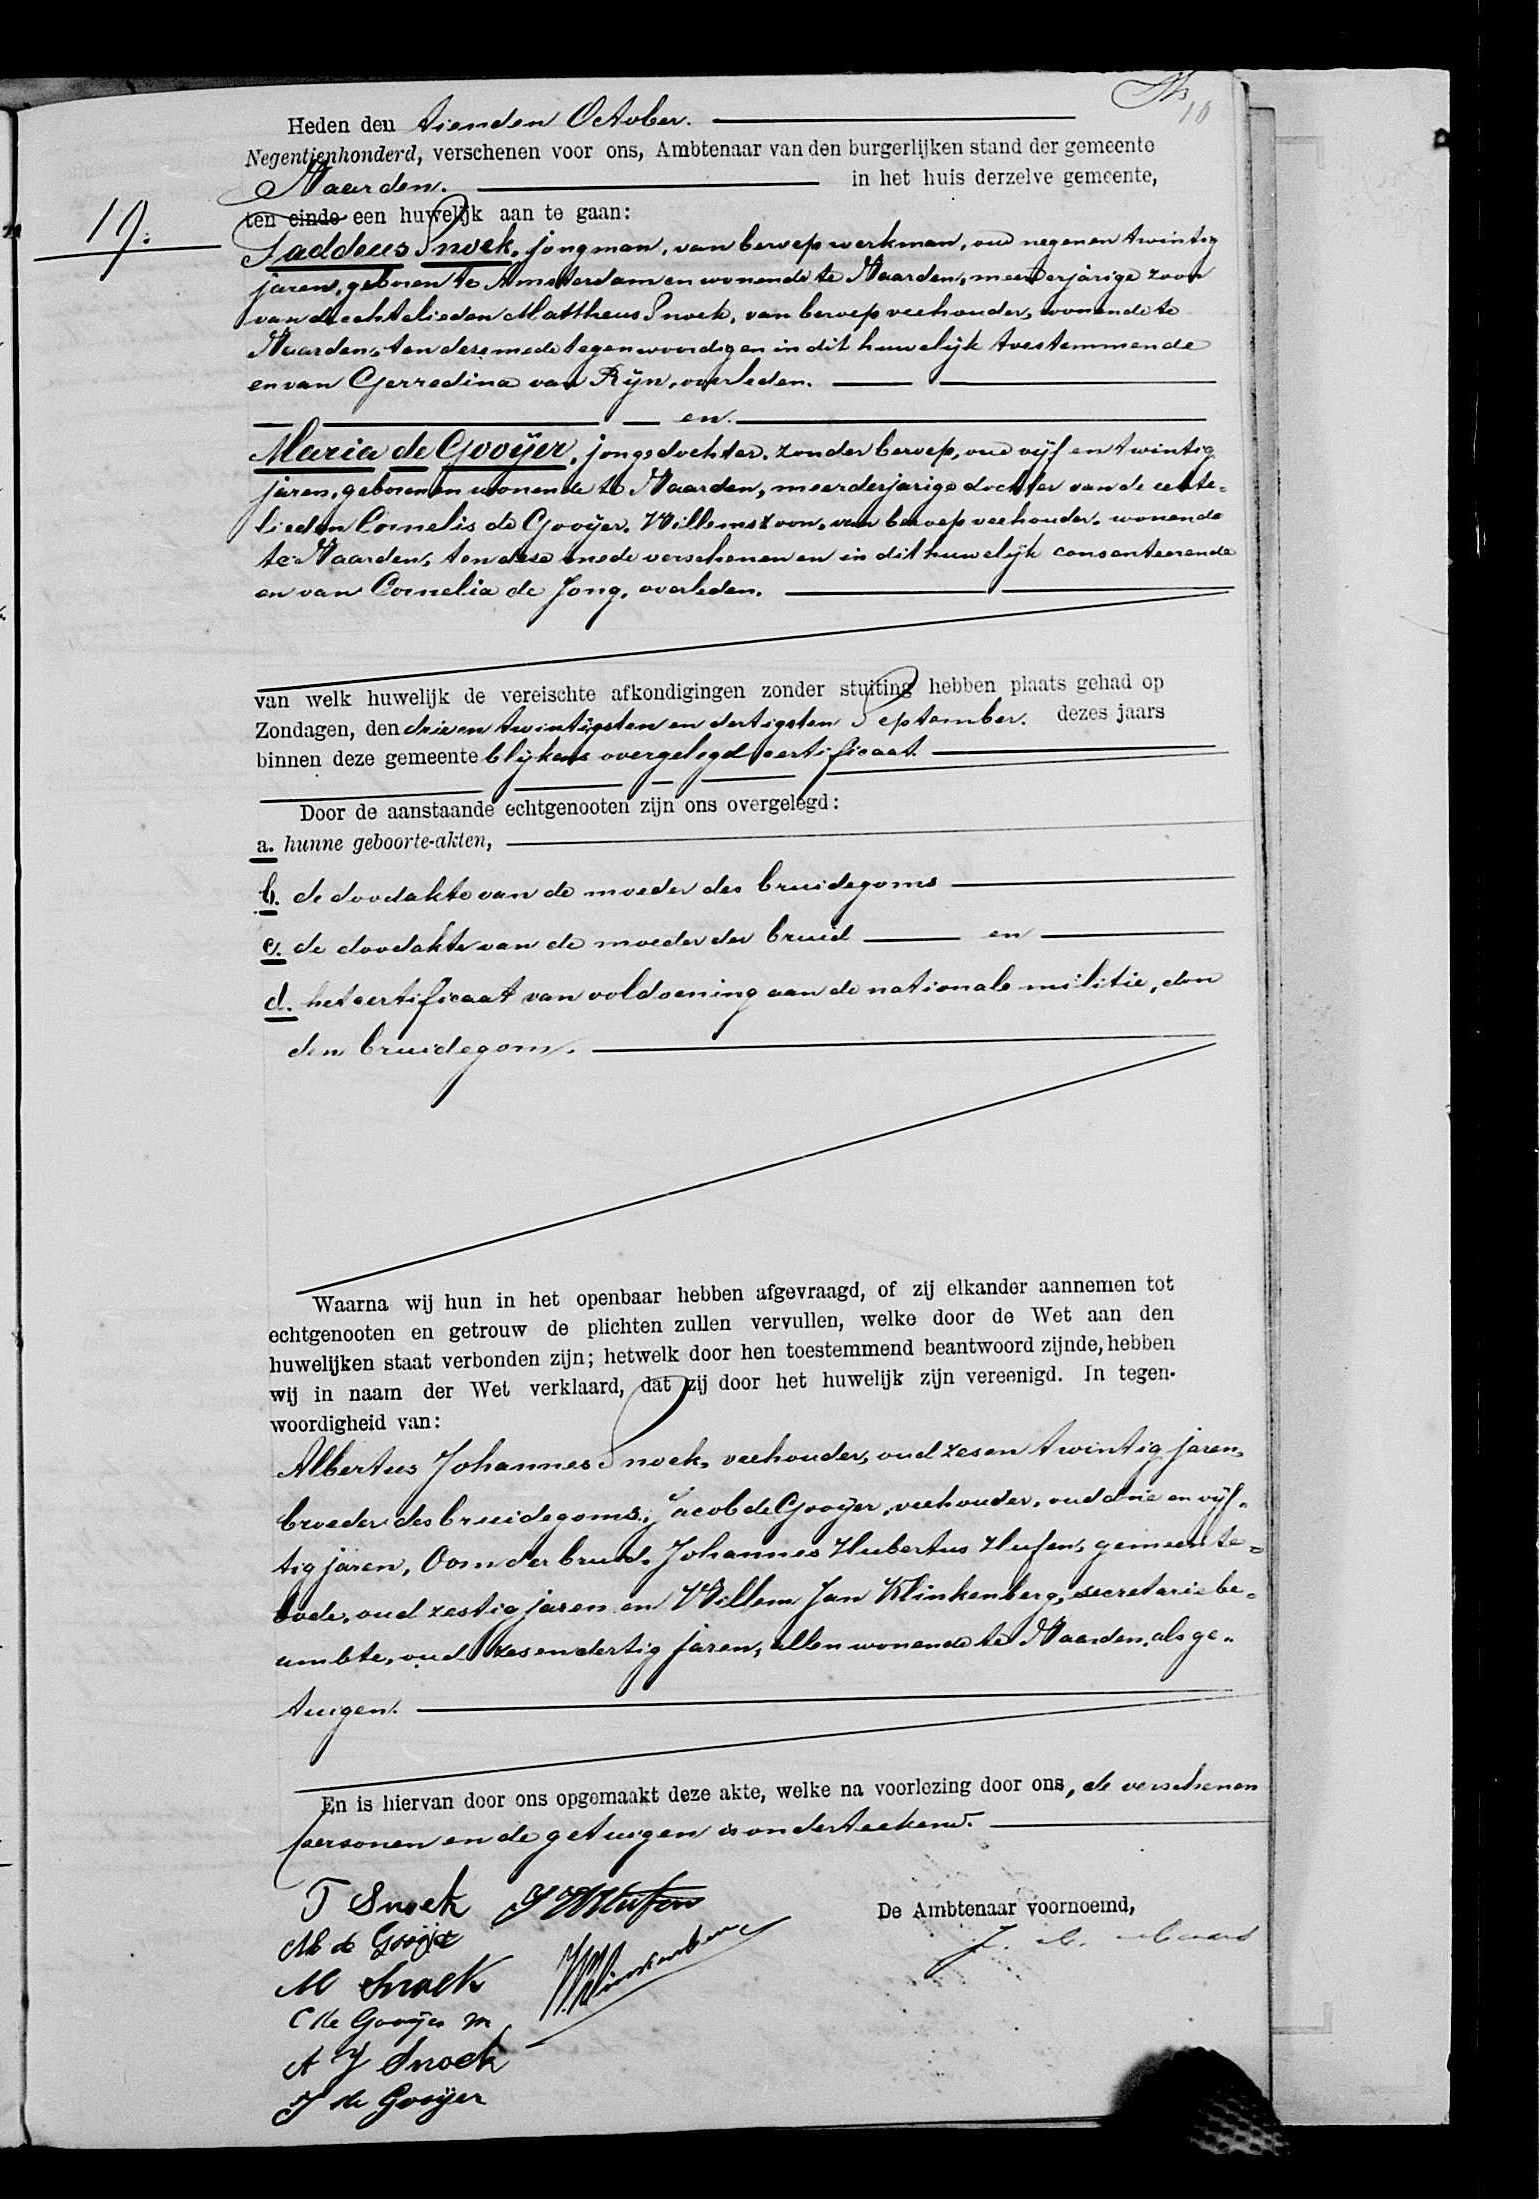 10
Heden den tienden October.
Negentienhonderd, verschenen voor ons, Ambtenaar van den burgerlijken stand der gemeente
Naarden. in het huis derzelve gemeente,
ten einde een huwelijk aan te gaan:
19.
Taddeus Snoek, jongman, van beroep werkman, oud negen en twintig
jaren, geboren te Amsterdam en wonende te Naarden, meerderjarige zoon
van de echtelieden Mattheus Snoek, van beroep veehouder, wonende te
Naarden, ten deze mede tegenwoordig en in dit huwelijk toestemmende
en van Gerredina van Rijn, overleden.
en
Maria de Gooijer, jongedochter, zonder beroep, oud vijf en twintig
jaren, geboren en wonende te Naarden, meerderjarige dochter van de echte-
lieden Cornelis de Gooijer, Willemszoon, van beroep veehouder, wonende
te Naarden, ten deze mede verschenen en in dit huwelijk consenteerende
en van Cornelia de Jong, overleden.
van welk huwelijk de vereischte afkondigingen zonder stuiting hebben plaats gehad op
Zondagen, den drie en twintigsten en dertigsten September. dezes jaars
binnen deze gemeente blijkens overgelegd certificaat.
Door de aanstaande echtgenooten zijn ons overgelegd:
a. hunne geboorte-akten,
b. de doodakte van de moeder des bruidegoms
c. de doodakte van de moeder der bruid en
d. het certificaat van voldoening aan de nationale militie, don
den bruidegom.
Waarna wij hun in het openbaar hebben afgevraagd, of zij elkander aannemen tot
echtgenooten en getrouw de plichten zullen vervullen, welke door de Wet aan den
huwelijken staat verbonden zijn; hetwelk door hen toestemmend beantwoord zijnde, hebben
wij in naam der Wet verklaard, dat zij door het huwelijk zijn vereenigd. In tegen-
woordigheid van:
Albertus Johannes Snoek, veehouder, oud zes en twintig jaren,
broeder des bruidegoms, Jacob de Gooijer, veehouder, oud drie en vijf-
tig jaren, Oom der bruid, Johannes Hubertus Hufen, gemeente-
bode, oud zestig jaren en Willem Jan Klinkenberg, secretariebe-
ambte, oud zes en dertig jaren, allen wonende te Naarden, als ge-
tuigen.
En is hiervan door ons opgemaakt deze akte, welke na voorlezing door ons, de verschenen
personen en de getuigen is onderteekend.
T Snoek J H Hufen
M de Gooijer
De Ambtenaar voornoemd,
M Snoek WJKlinkenberg
C de Gooijer
A J Snoek
J de Gooijer